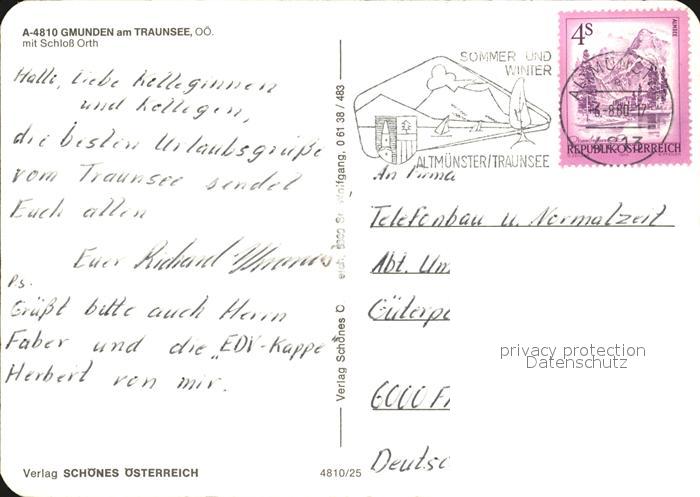 A-4810 GMUNDEN am TRAUNSEE, OÖ.
mit Schloß Orth
Hallo, liebe Kolleginnen
und Kollegen,
die besten Urlaubsgrüße
vom Traunsee sendet
Euch allen
Euer Richard
P.s.
Grüßt bitte auch Herrn
Faber und die „EDV-Kappe"
Herbert von mir.
Verlag SCHÖNES ÖSTERREICH
4810/25
Verlag Schönes Ö
Wolfgang, 0 61 38 / 483
SOMMER UND
WINTER
ALTMÜNSTER/TRAUNSEE
4S
ALMSEE
-8.80-17
4813
REPUBLIK ÖSTERREICH
An Firma
Telefonbau u. Normalzeit
Abt. Um
Güterpl
6000 Fr
Deutsc
privacy protection
Datenschutz